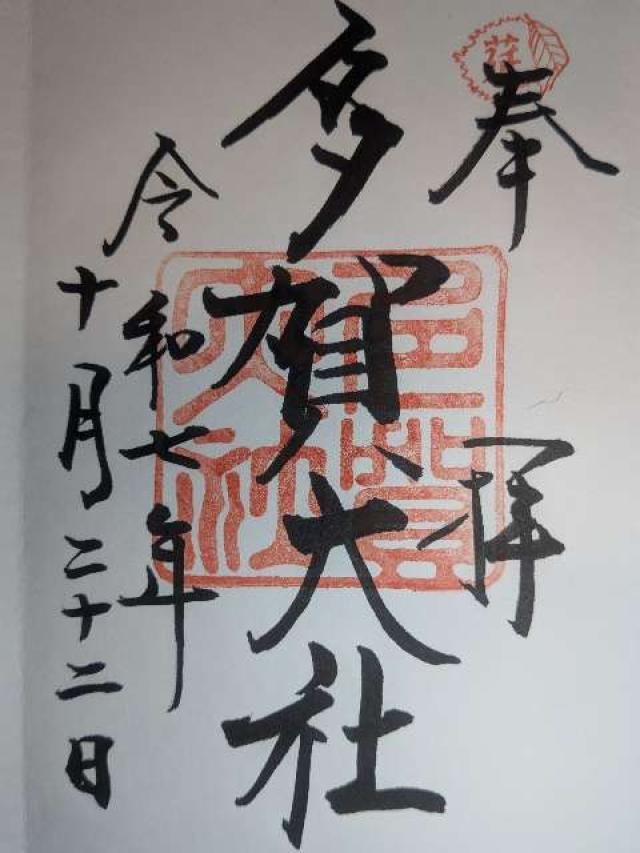 奉拝
多賀大社
令和七年
十月二十二日